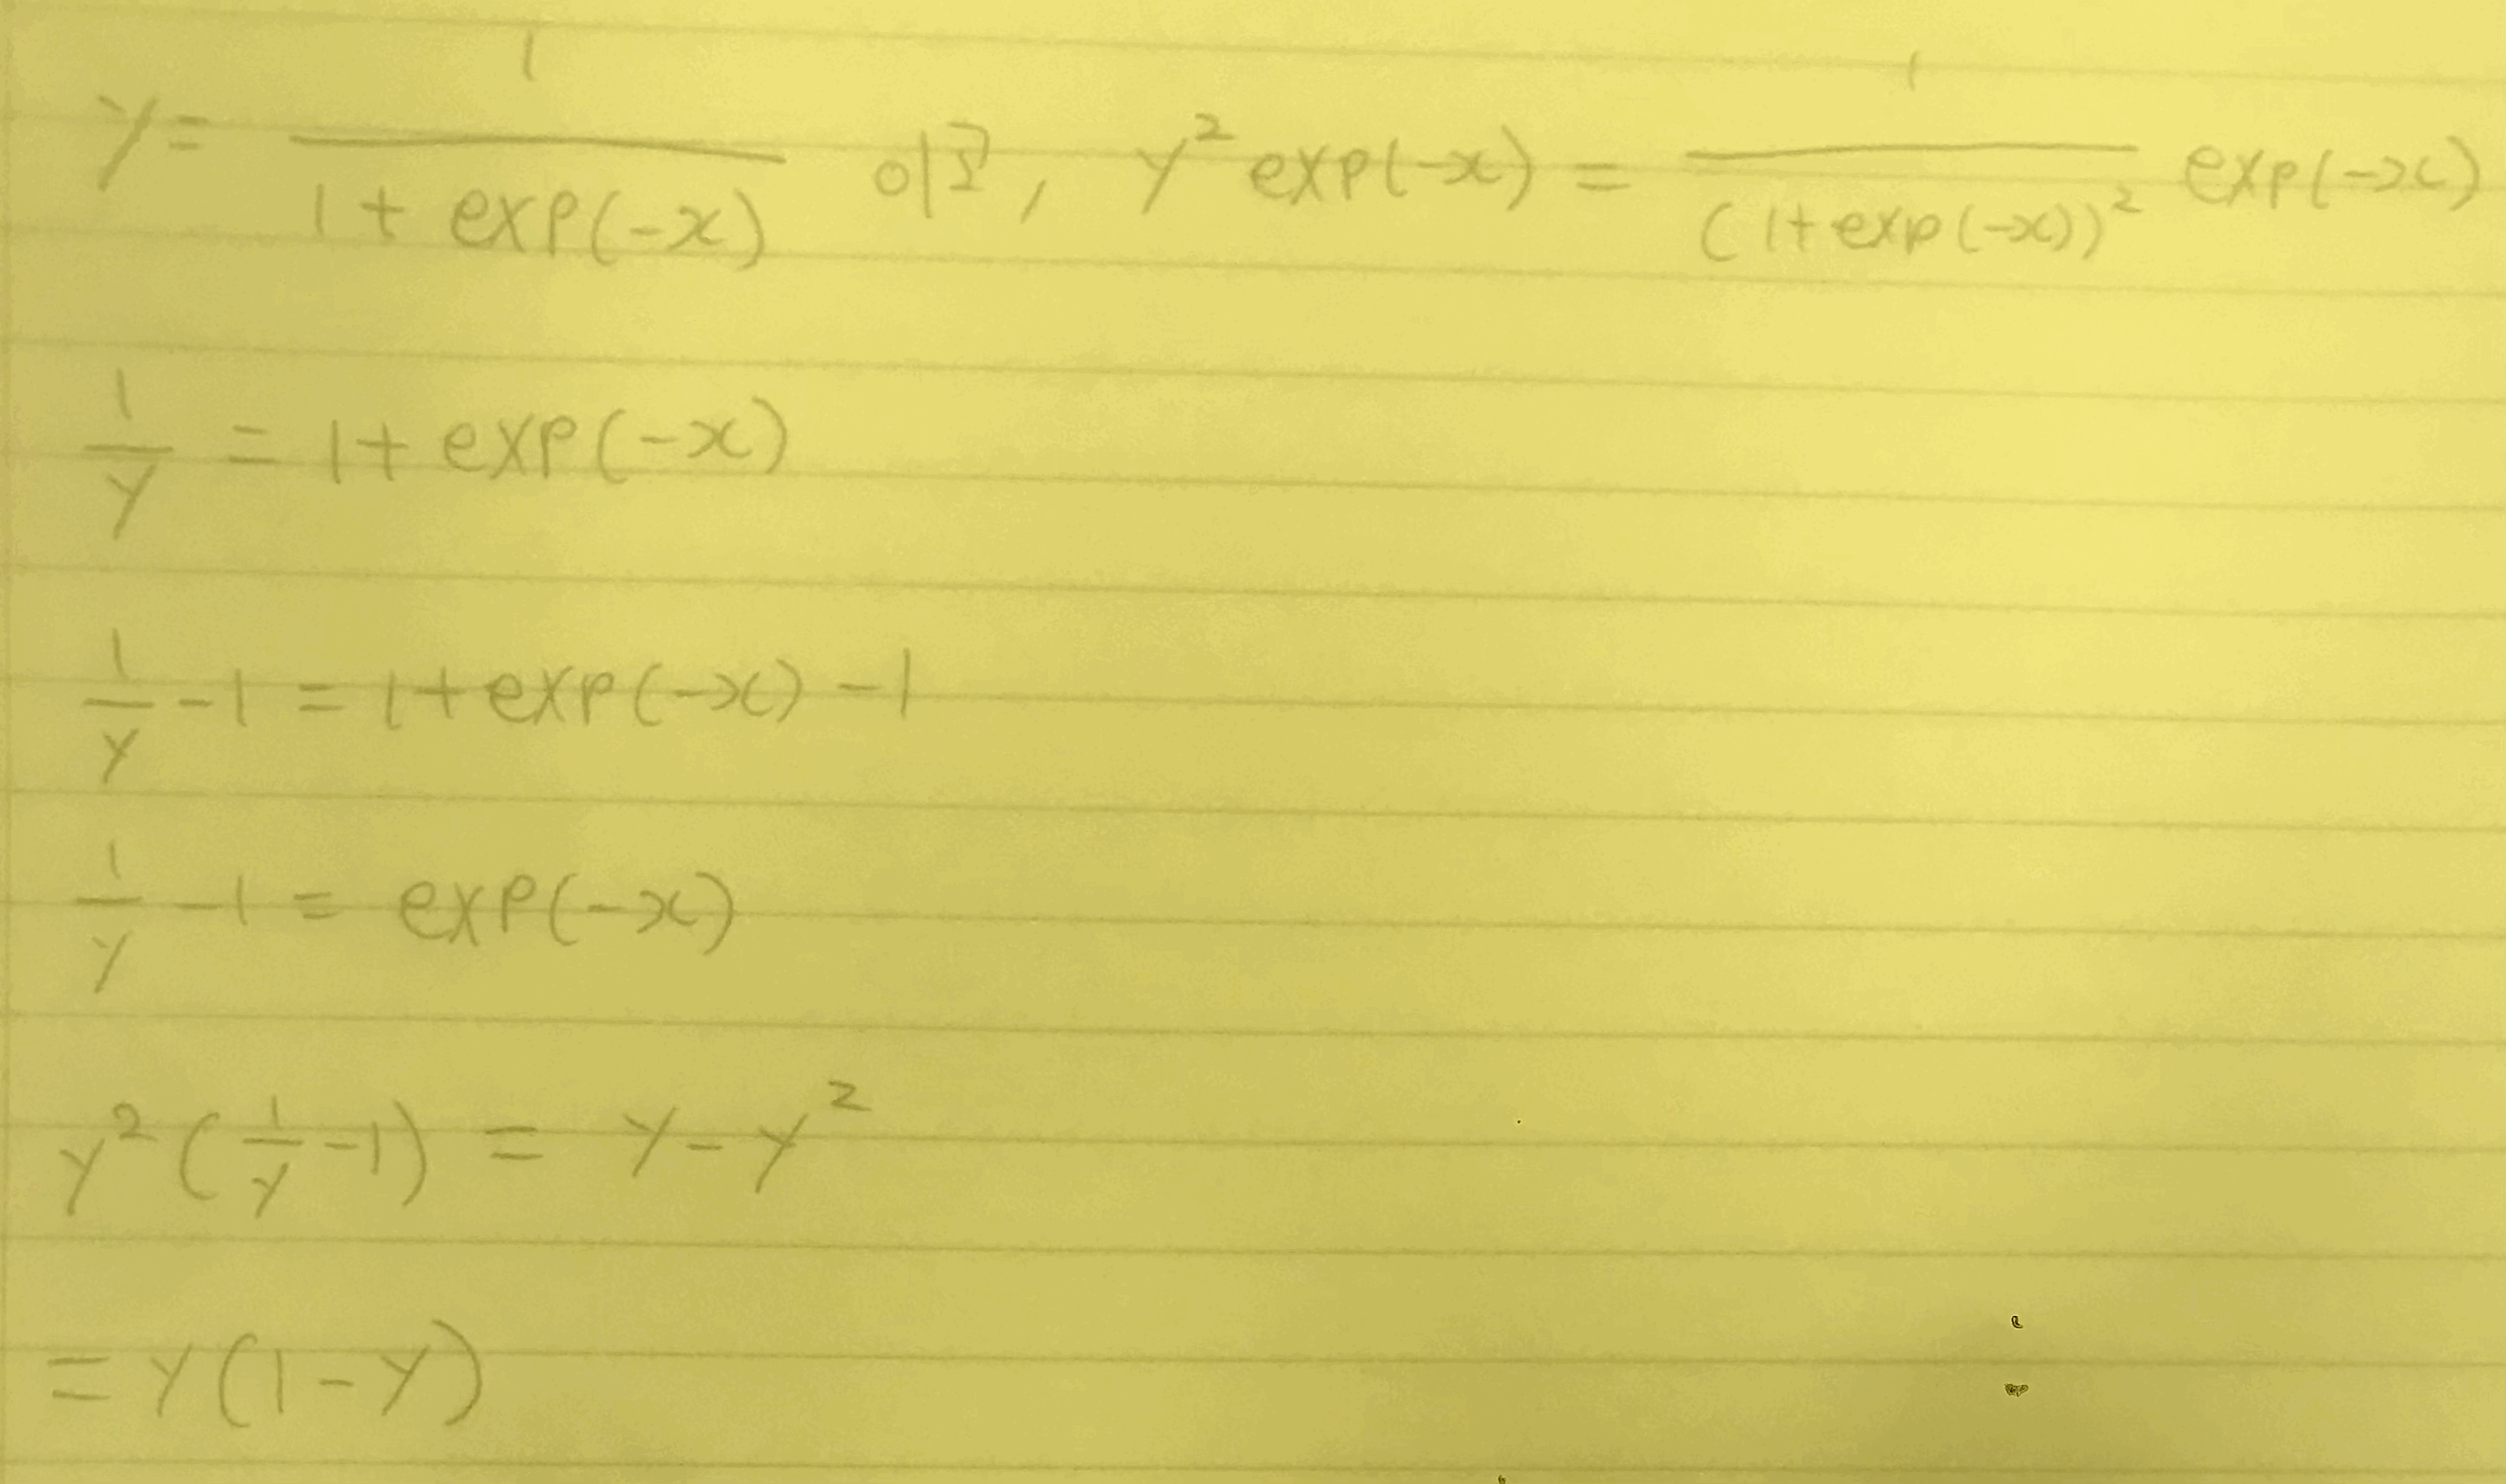 y = 1 / (1 + exp(-x)) 이고, y² exp(-x) = 1 / (1 + exp(-x))² exp(-x)
1/y = 1 + exp(-x)
1/y - 1 = 1 + exp(-x) - 1
1/y - 1 = exp(-x)
y² (1/y - 1) = y - y²
= y(1 - y)